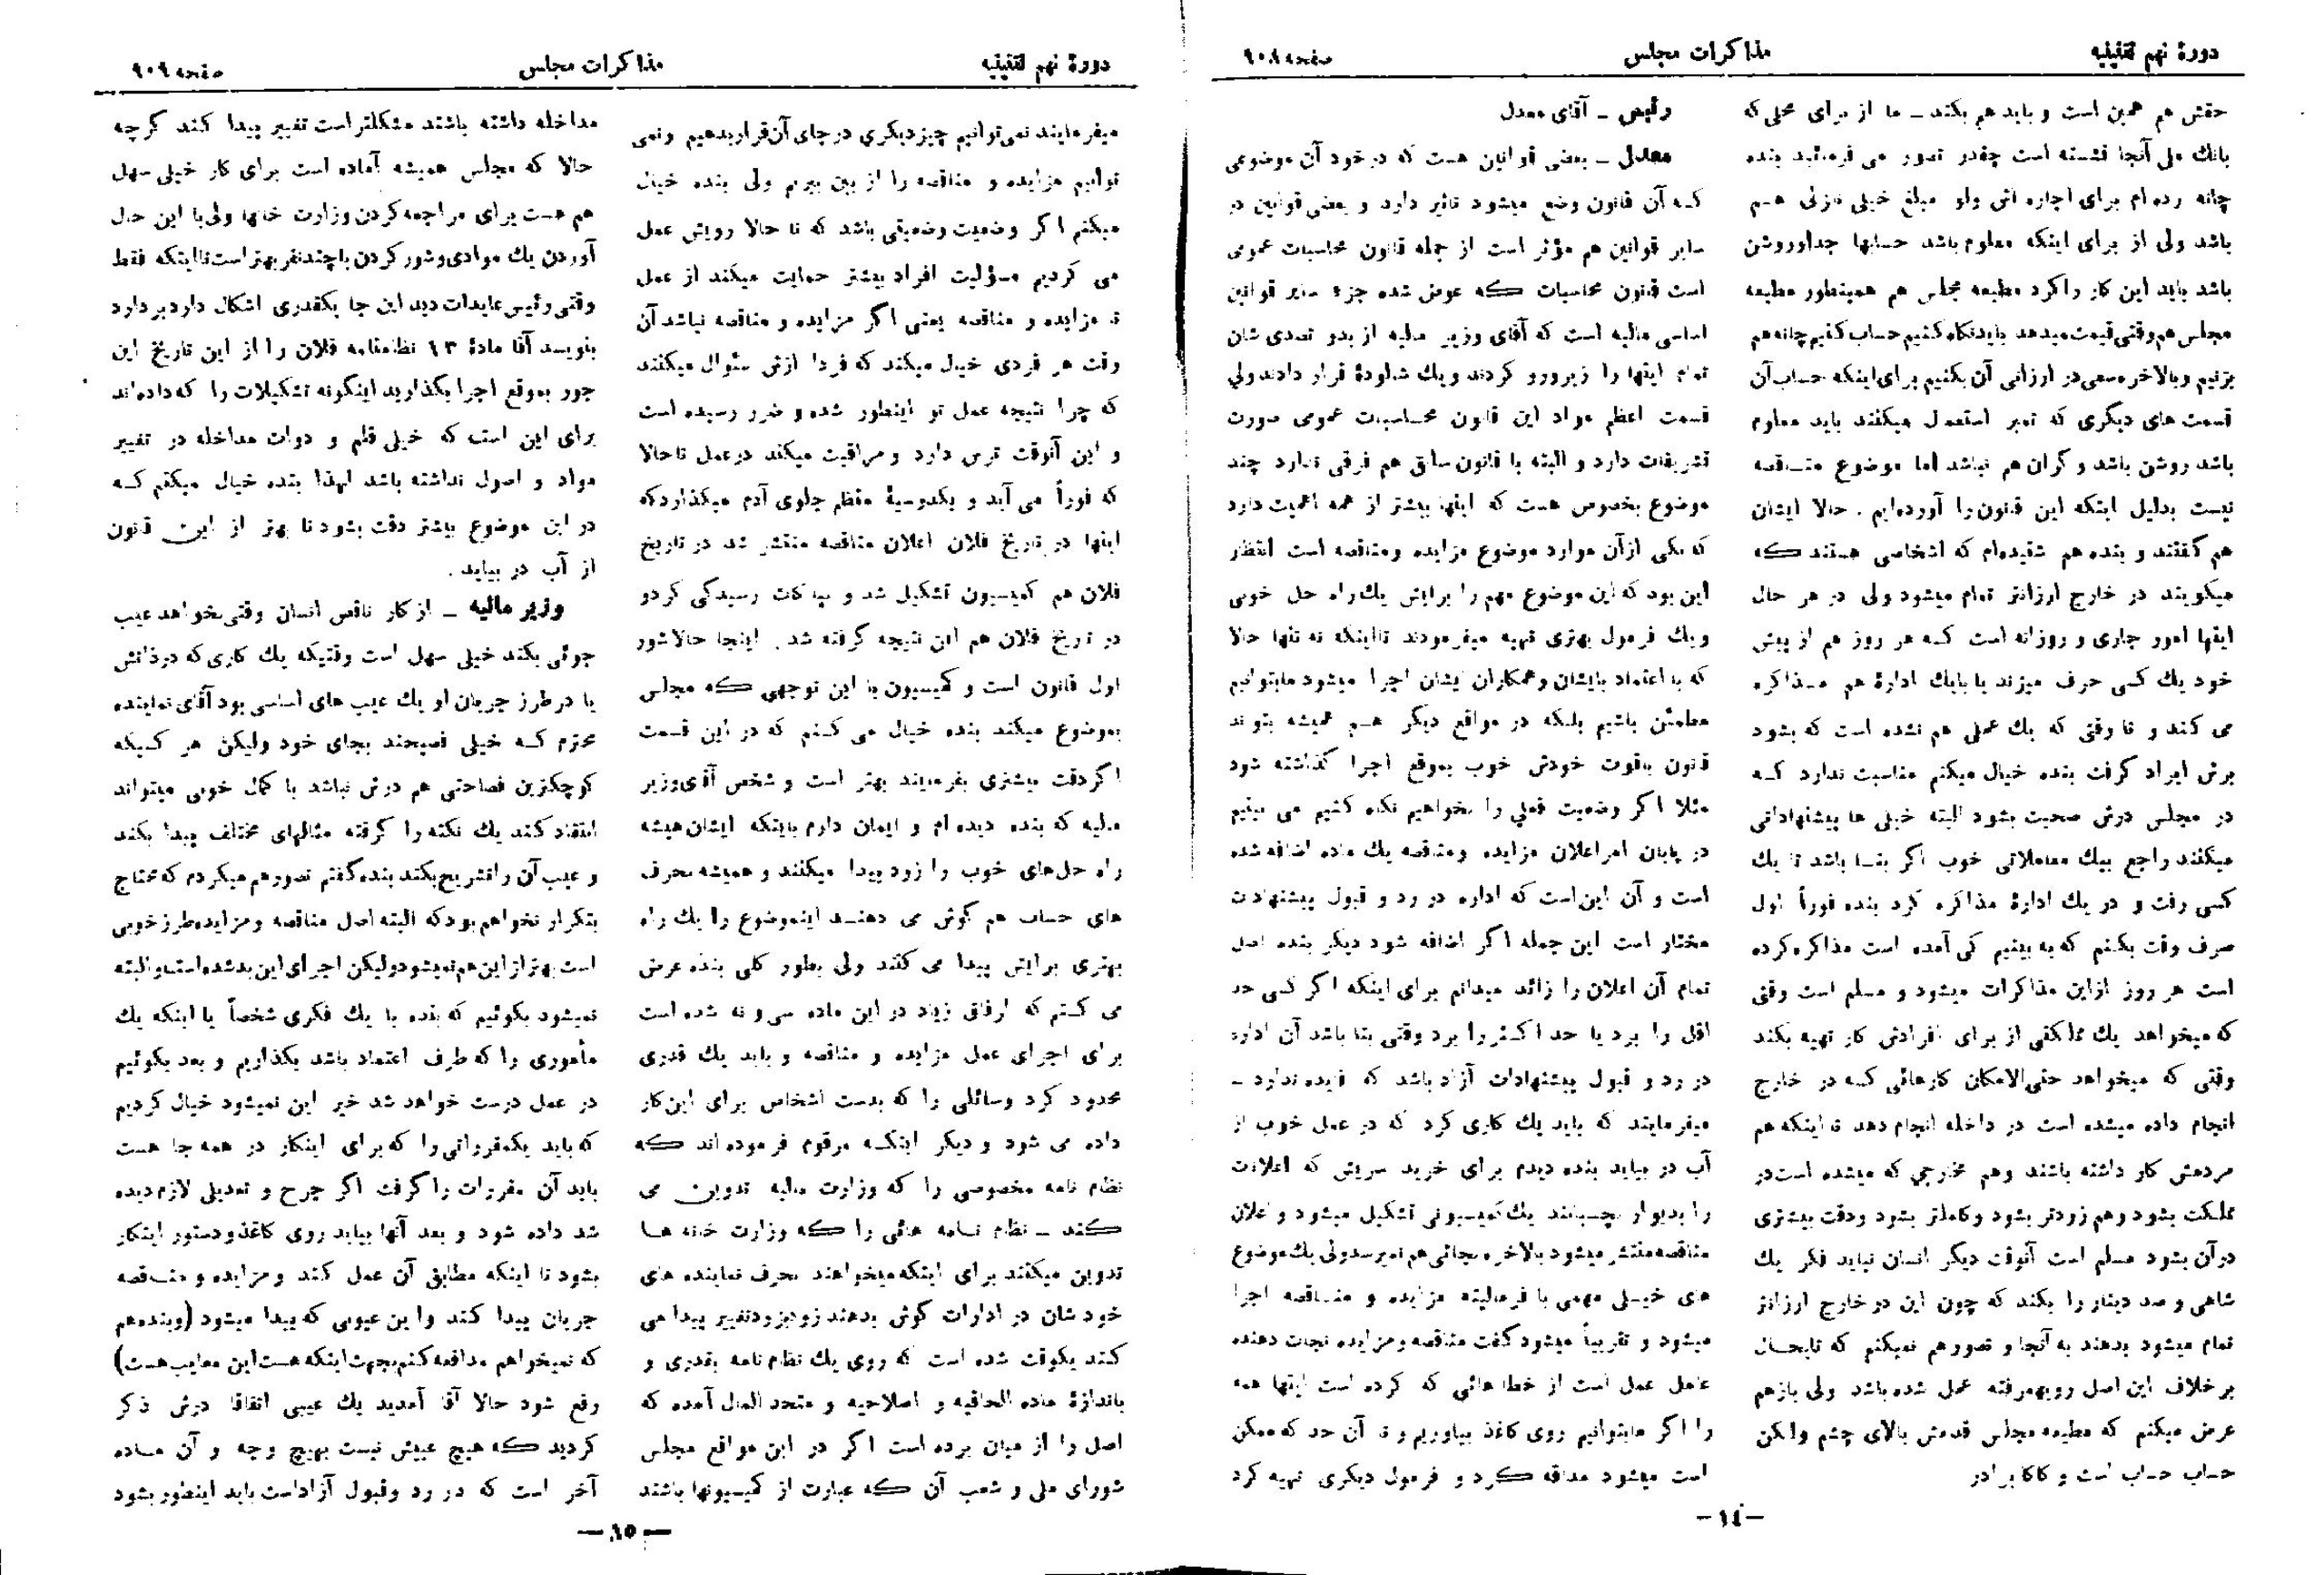 دورهٔ نهم تقنینیه
مذاکرات مجلس
صفحه ۹۰۸
حقش هم همین است و باید هم بکند ـ ما از برای محلی که
بانك ملی آنجا نشسته است چقدر تصور می فرمائید بنده
چانه زده ام برای اجاره اش ولو مبلغ خیلی نازلی هم
باشد ولی از برای اینکه معلوم باشد حسابها جدا و روشن
باشد باید این کار را کرد مطبعه مجلس هم همینطور مطبعه
مجلس هم وقتی قیمت میدهد باید نگاه کنیم حساب کنیم چانه هم
بزنیم و بالاخره سعی در ارزانی آن بکنیم برای اینکه حساب آن
قسمت های دیگری که تمبر استعمال میکنند باید معلوم
باشد روشن باشد و گران هم نباشد اما موضوع مناقصه
نیست بدلیل اینکه این قانون را آورده‌ایم . حالا ایشان
هم گفتند و بنده هم شنیده‌ام که اشخاصی هستند که
میگویند در خارج ارزانتر تمام میشود ولی در هر حال
اینها امور جاری و روزانه است که هر روز هم از پیش
خود یك کسی حرف میزند یا بایك ادارهٔ هم مذاکره
می کند و تا وقتی که یك عملی هم نشده است که بشود
برش ایراد گرفت بنده خیال میکنم مناسبت ندارد که
در مجلس درش صحبت بشود البته خیلی ها پیشنهاداتی
میکنند راجع بیك معاملاتی خوب اگر بنا باشد تا یك
کسی رفت و در یك ادارهٔ مذاکره کرد بنده فوراً اول
صرف وقت بکنم که به بینیم کی آمده است مذاکره کرده
است هر روز ازاین مذاکرات میشود و مسلم است وقتی
که میخواهد یك مملکتی از برای افرادش کار تهیه بکند
وقتی که میخواهد حتی‌الامکان کارهائی که در خارج
انجام داده میشده است در داخله انجام دهد تا اینکه هم
مردمش کار داشته باشند وهم مخارجی که میشده است در
مملکت بشود وهم زودتر بشود و کاملتر بشود ودقت بیشتری
در آن بشود مسلم است آنوقت دیگر انسان نباید فکر یك
شاهی و صد دینار را بکند که چون این در خارج ارزانتر
تمام میشود بدهند به آنجا و تصور هم نمیکنم که تابحال
برخلاف این اصل رویهمرفته عمل شده باشد ولی بازهم
عرض میکنم که مطبعه مجلس قدمش بالای چشم ولکن
حساب حساب است و کاکا برادر
رئیس ـ آقای معدل
معدل ـ بعضی قوانین هست که در خود آن موضوعی
که آن قانون وضع میشود تاثیر دارد و بعضی قوانین در
سایر قوانین هم مؤثر است از جمله قانون محاسبات عمومی
است قانون محاسبات که عوض شده جزء سایر قوانین
اساسی مالیه است که آقای وزیر مالیه از بدو تصدی شان
تمام اینها را زیرورو کردند و یك شالودهٔ قرار دادند ولی
قسمت اعظم مواد این قانون محاسبات عمومی صورت
تشریفات دارد و البته با قانون سابق هم فرقی ندارد چند
موضوع بخصوص هست که اینها بیشتر از همه اهمیت دارد
که یکی ازآن موارد موضوع مزایده ومناقصه است انتظار
این بود که این موضوع مهم را برایش یك راه حل خوبی
ویك فرمول بهتری تهیه میفرمودند تااینکه نه تنها حالا
که با اعتماد بایشان و همکاران ایشان اجرا میشود مابتوانیم
مطمئن باشیم بلکه در مواقع دیگر هم همیشه بتواند
قانون باقوت خودش خوب بموقع اجرا گذاشته شود
مثلا اگر وضعیت فعلی را بخواهیم نگاه کنیم می بینیم
در پایان هر اعلان مزایده ومناقصه یك ماده اضافه شده
است و آن این است که اداره در رد و قبول پیشنهادات
مختار است این جمله اگر اضافه شود دیگر بنده اصل
تمام آن اعلان را زائد میدانم برای اینکه اگر کسی حد
اقل را برد یا حد اکثر را برد وقتی بنا باشد آن اداره
در رد و قبول پیشنهادات آزاد باشد که فایده ندارد ـ
میفرمایند که باید یك کاری کرد که در عمل خوب از
آب در بیاید بنده دیدم برای خرید سریش که اعلانات
را بدیوار بچسبانند یك کمیسیونی تشکیل میشود و اعلان
مناقصه منتشر میشود بالاخره بجائی هم نمیرسد ولی یك موضوع
های خیلی مهمی با فرمالیته مزایده و مناقصه اجرا
میشود و تقریباً میشود گفت مناقصه ومزایده نجات دهنده
عامل عمل است از خطا هائی که کرده است اینها همه
را اگر مابتوانیم روی کاغذ بیاوریم و تا آن حد که ممکن
است میشود مداقه کرد و فرمول دیگری تهیه کرد
-۱٤-
دورهٔ نهم تقنینیه
مذاکرات مجلس
صفحه ۹۰۹
میفرمایند نمی‌توانیم چیز دیگری در جای آن قرار بدهیم ونمی
توانیم مزایده و مناقصه را از بین ببریم ولی بنده خیال
میکنم اگر وضعیت وضعیتی باشد که تا حالا رویش عمل
می کردیم مسؤلیت افراد بیشتر حمایت میکند از عمل
تا مزایده و مناقصه یعنی اگر مزایده و مناقصه نباشد آن
وقت هر فردی خیال میکند که فردا ازش سئوال میکنند
که چرا نتیجه عمل تو اینطور شده و ضرر رسیده است
و این آنوقت ترس دارد و مراقبت میکند درعمل تاحالا
که فوراً می آید و یکدوسیهٔ منظم جلوی آدم میگذارد که
اینها در تاریخ فلان اعلان مناقصه منتشر شد در تاریخ
فلان هم کمیسیون تشکیل شد و پاکات رسیدگی کرد و
در تاریخ فلان هم این نتیجه گرفته شد . اینجا حالا شور
اول قانون است و کمیسیون با این توجهی که مجلس
بموضوع میکند بنده خیال می کنم که در این قسمت
اگر دقت بیشتری بفرمایند بهتر است و شخص آقای وزیر
مالیه که بنده دیده ام و ایمان دارم باینکه ایشان همیشه
راه حل‌های خوب را زود پیدا میکنند و همیشه بحرف
های حساب هم گوش می دهند اینموضوع را یك راه
بهتری برایش پیدا می کنند ولی بطور کلی بنده عرض
می کنم که ارفاق زیاد در این ماده سی و نه شده است
برای اجرای عمل مزایده و مناقصه و باید یك قدری
محدود کرد وسائلی را که بدست اشخاص برای این کار
داده می شود و دیگر اینکه مرقوم فرموده اند که
نظام نامه مخصوصی را که وزارت مالیه تدوین می
کند ـ نظام نامه هائی را که وزارت خانه ها
تدوین میکنند برای اینکه میخواهند بحرف نماینده های
خودشان در ادارات گوش بدهند زودبزود تغییر پیدا می
کند یکوقت شده است که روی یك نظام نامه بقدری و
باندازهٔ ماده الحاقیه و اصلاحیه و متحد المال آمده که
اصل را از میان برده است اگر در این مواقع مجلس
شورای ملی و شعب آن که عبارت از کمیسیونها باشند
مداخله داشته باشند مشکلتر است تغییر پیدا کند گرچه
حالا که مجلس همیشه آماده است برای کار خیلی سهل
هم هست برای مراجعه کردن وزارت خانها ولی با این حال
آوردن یك موادی و شور کردن با چند نفر بهتر است تا اینکه فقط
وقتی رئیس عایدات دید این جا یکقدری اشکال دارد بر دارد
بنویسد آقا مادهٔ ۱۳ نظامنامه فلان را از این تاریخ این
جور بموقع اجرا بگذارید اینگونه تشکیلات را که داده‌اند
برای این است که خیلی قلم و دوات مداخله در تغییر
مواد و اصول نداشته باشد لهذا بنده خیال میکنم که
در این موضوع بیشتر دقت بشود تا بهتر از این قانون
از آب در بیاید .
وزیر مالیه ـ از کار ناقص انسان وقتی بخواهد عیب
جوئی بکند خیلی سهل است وقتیکه یك کاری که در ذاتش
یا در طرز جریان او یك عیب های اساسی بود آقای نماینده
محترم که خیلی فصیحند بجای خود ولیکن هر کسیکه
کوچکترین فصاحتی هم درش نباشد با کمال خوبی میتواند
انتقاد کند یك نکته را گرفته مثالهای مختلف پیدا بکند
و عیب آن را تشریح بکند بنده گفتم تصور هم میکردم که محتاج
بتکرار نخواهم بود که البته اصل مناقصه ومزایده طرز خوبی
است بهتر از این هم نمیشود ولیکن اجرای این بد شده است و البته
نمیشود بگوئیم که بنده با یك فکری شخصاً یا اینکه یك
مأموری را که طرف اعتماد باشد بگذاریم و بعد بگوئیم
در عمل درست خواهد شد خیر این نمیشود خیال کردیم
که باید یکمقرراتی را که برای اینکار در همه جا هست
باید آن مقررات را گرفت اگر جرح و تعدیلی لازم دیده
شد داده شود و بعد آنها بیاید روی کاغذ و دستور اینکار
بشود تا اینکه مطابق آن عمل کند و مزایده و مناقصه
جریان پیدا کند و این عیوبی که پیدا میشود (و بنده هم
که نمیخواهم مدافعه کنم بجهت اینکه هست این معایب هست)
رفع شود حالا آقا آمدید یك عیبی اتفاقا درش ذکر
کردید که هیچ عیبش نیست بهیچ وجه و آن ماده
آخر است که در رد وقبول آزاد است باید اینطور بشود
— ۱٥ —